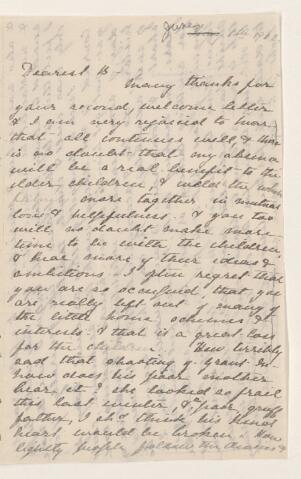 June 8th 1902
Dearest B -
Many thanks for
your second, welcome letter
& I am very rejoiced to hear
that all continues well, & there
is no doubt that my absence
will be a real benefit to the
elder children, & weld the whole
more together in mutual
love & helpfulness. & you too
will no doubt make more
time to be with the children
& hear more of their ideas &
ambitions. I often regret that
you are so occupied, that you
are really left out of many of
the little home schemes &
interests. & that is a great loss
for the children. How terribly
sad that shooting of
how does his poor mother
bear it? she looked so frail
this last winter, & poor
father, I shd think his kind
heart would be broken. How
lightly people